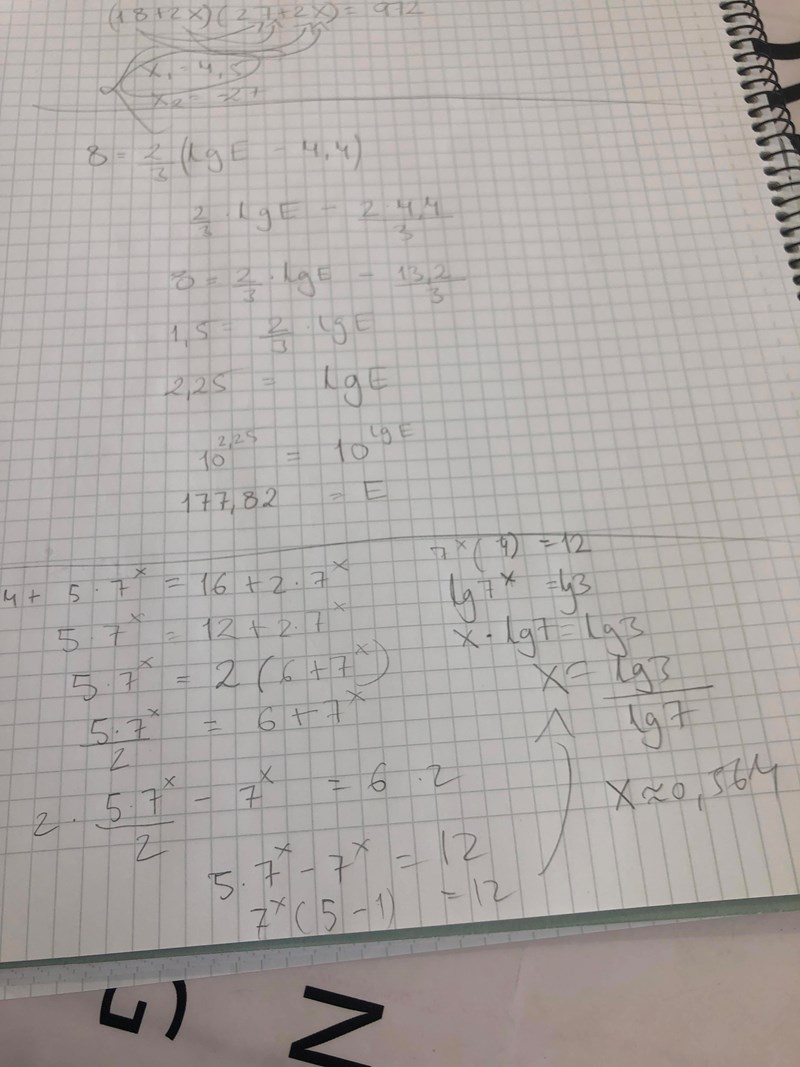 (18+2x)(27+2x) = 972
x₁ = 4,5
x₂ = -27
8 = 2/3 (lgE - 4,4)
2/3 · lgE - 2·4,4/3
8 = 2/3 · lgE - 13,2/3
1,5 = 2/3 · lgE
2,25 = lgE
10^2,25 = 10^lgE
177,82 = E
4 + 5·7^x = 16 + 2·7^x
5·7^x = 12 + 2·7^x
5·7^x = 2(6+7^x)
5·7^x/2 = 6 + 7^x
2 · 5·7^x/2 - 7^x = 6 · 2
5·7^x - 7^x = 12
7^x (5-1) = 12
7^x (4) = 12
lg7^x = lg3
x · lg7 = lg3
x = lg3/lg7
x ≈ 0,564
N